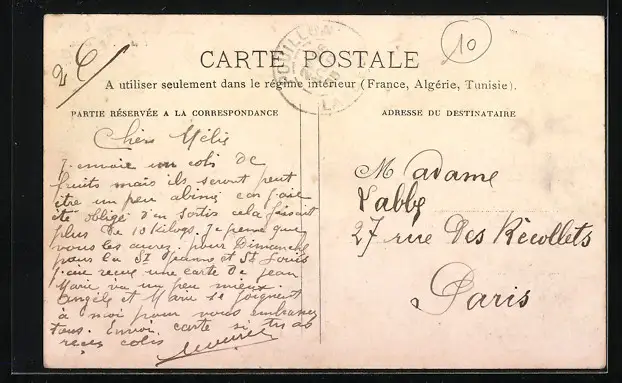 CARTE POSTALE
10
A utiliser seulement dans le régime intérieur (France, Algérie, Tunisie).
PARTIE RÉSERVÉE A LA CORRESPONDANCE
ADRESSE DU DESTINATAIRE
Chers Mélie
J. envoie un coli de
fruits mais ils seront peut
être un peu abimé car j'aie
été obligé d'en sortis cela faisait
plus de 10 kilogs. Je pense que
vous les aurez pour Dimanche
pour la St Jeanne et St Louis
j'aie reçue une carte de jean
Marie va un peu mieux.
Angèle et Marie se joignent
à moi pour vous embrasser
tous. envoi carte si tu as
reçu colis
Madame
Labbe
27 rue Des Récollets
Paris